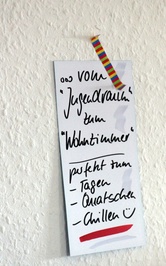 ... vom
"Jugendraum"
zum
"Wohnzimmer"
perfekt zum
- Tagen
- Quatschen
- Chillen ☺